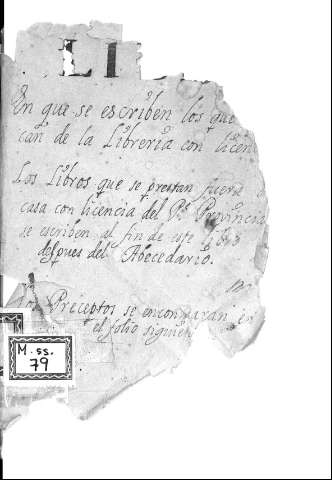 LI
En que se escriben los que
can de la Libreria con licen
Los Libros que se prestan fuera
casa con licencia del Pe. Provincia
se escriben al fin de este Libro
despues del Abecedario.
Los Preceptos se encontraran en
el folio siguien
M.ss.
79